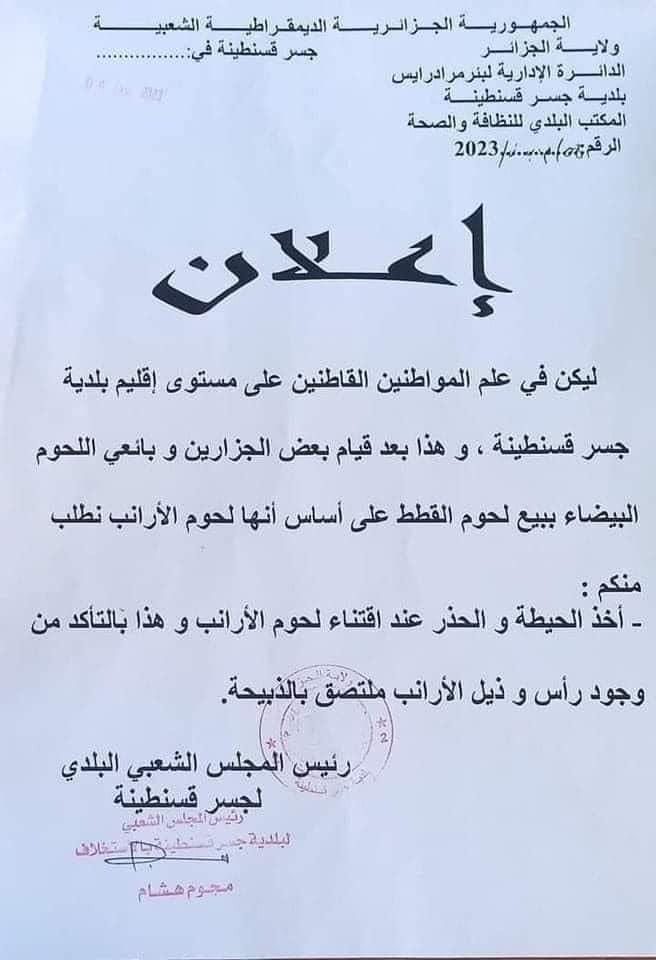 الجمهورية الجزائرية الديمقراطية الشعبية
ولاية الجزائر
جسر قسنطينة في:................
الدائرة الإدارية لبئر مراد رايس
بلدية جسر قسنطينة
المكتب البلدي للنظافة والصحة
الرقم: /2023
إعلان
ليكن في علم المواطنين القاطنين على مستوى إقليم بلدية
جسر قسنطينة ، و هذا بعد قيام بعض الجزارين و بائعي اللحوم
البيضاء ببيع لحوم القطط على أساس أنها لحوم الأرانب نطلب
منكم :
- أخذ الحيطة و الحذر عند اقتناء لحوم الأرانب و هذا بالتأكد من
وجود رأس و ذيل الأرانب ملتصق بالذبيحة.
رئيس المجلس الشعبي البلدي
لجسر قسنطينة
رئيس المجلس الشعبي
لبلدية جسر قسنطينة بالاستخلاف
مجوم هشام